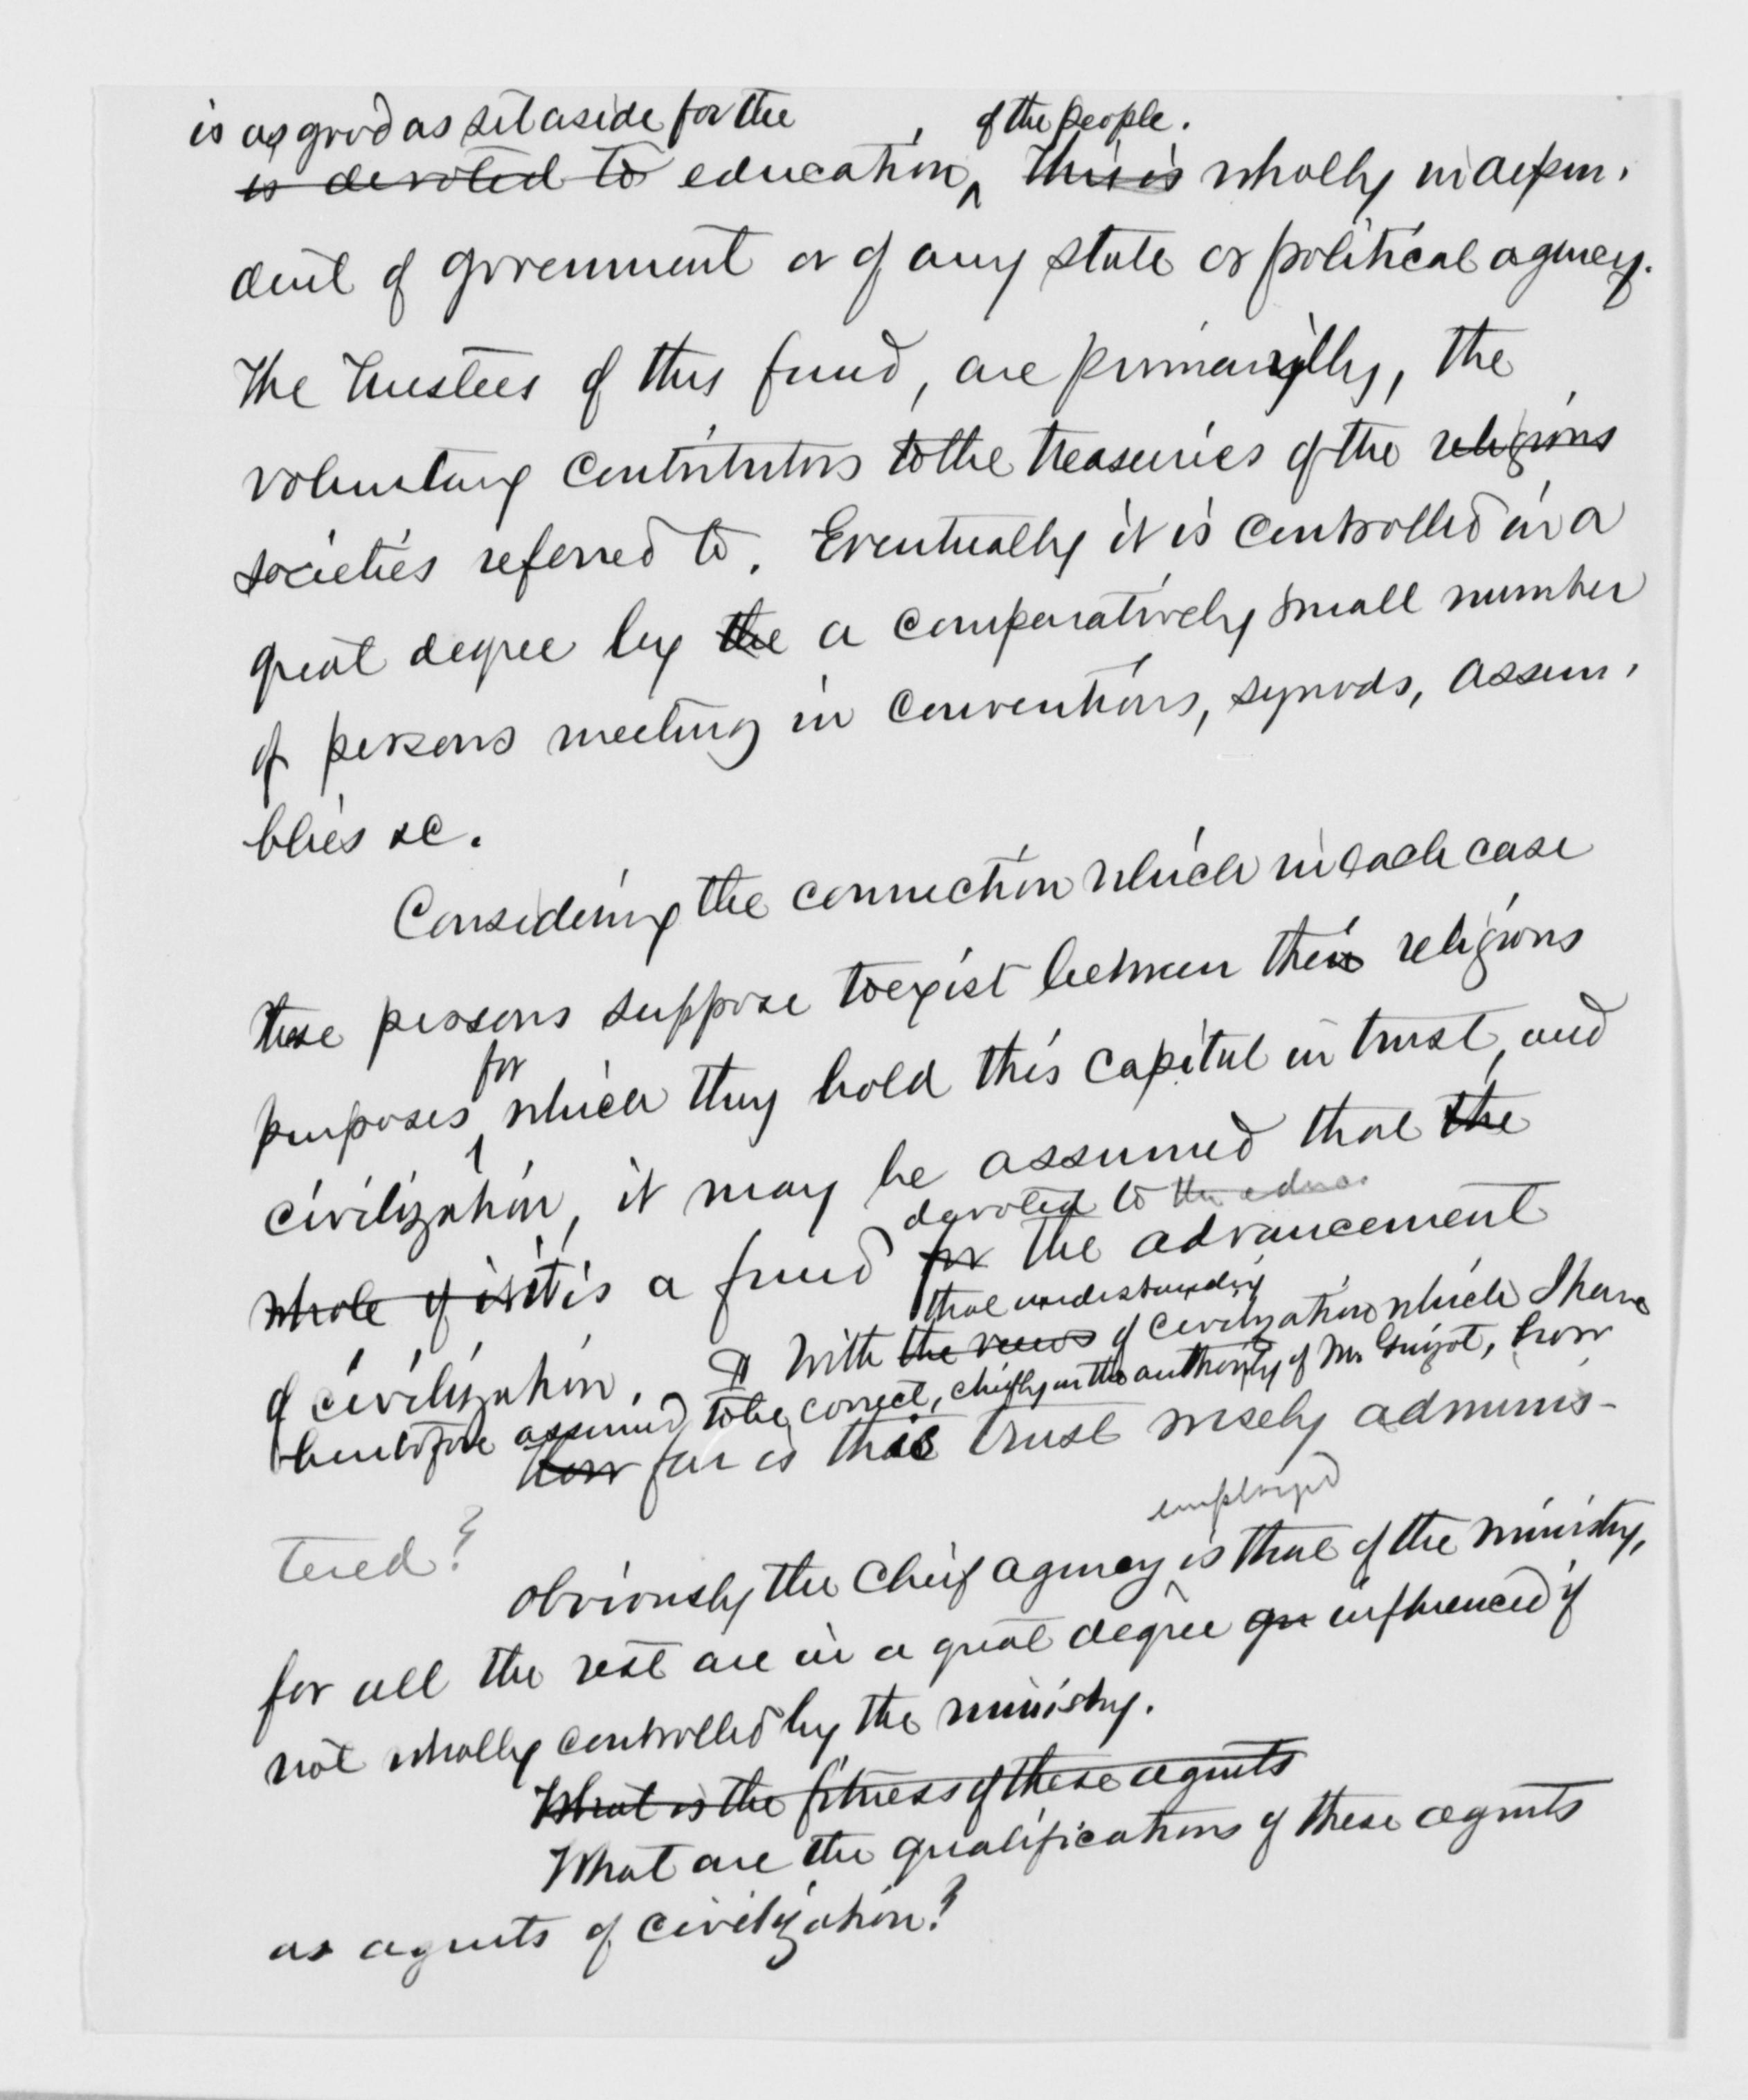 is as good as set aside for the , of the people.
is devoted to education, This is wholly indepen-
dent of government or of any state or political agency.
The Trustees of this fund, are primarily, the
voluntary contributors to the treasuries of the religions
societies referred to. Eventually it is controlled in a
great degree by the a comparatively small number
of persons meeting in conventions, synods, assem-
blies &c.
Considering the connection which in each case
these persons suppose to exist between their religious
for
purposes which they hold this capital in trust, and
civilization, it may be assumed that the
devoted to the educa.
whole of it is a fund for the advancement
that understanding
of civilization. With the views of civilization which I have
heretofore assumed to be correct, chiefly on the authority of Mr Guizot, how
how far is this trust wisely adminis-
tered?
employed
Obviously the chief agency is that of the ministry,
for all the rest are in a great degree gu influenced if
not wholly controlled by the ministry.
What is the fitness of these agents
What are the qualifications of these agents
as agents of civilization?